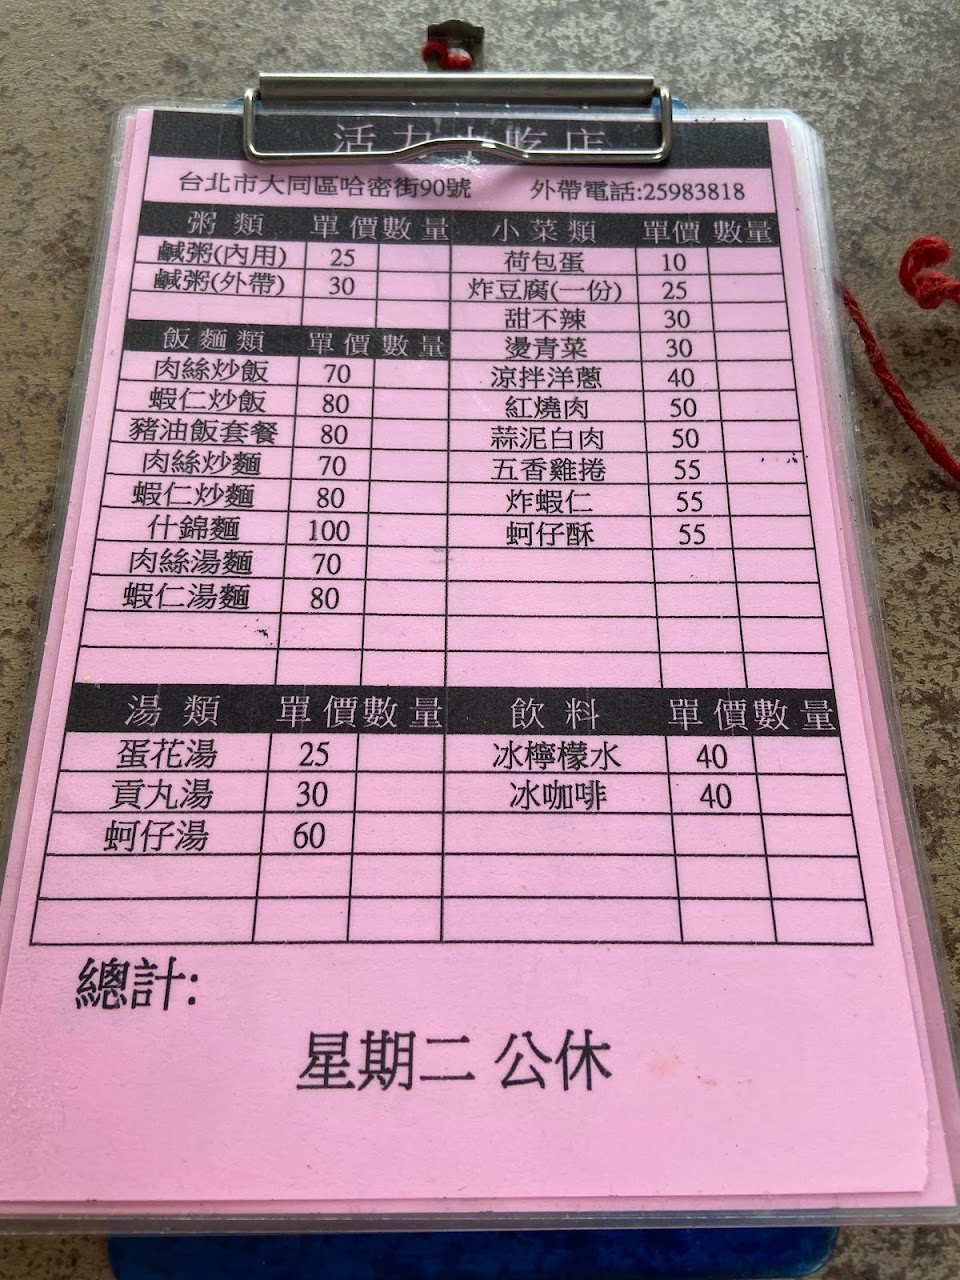 活力小吃店
台北市大同區哈密街90號 外帶電話:25983818
粥類 單價 數量
鹹粥(內用) 25
鹹粥(外帶) 30
飯麵類 單價 數量
肉絲炒飯 70
蝦仁炒飯 80
豬油飯套餐 80
肉絲炒麵 70
蝦仁炒麵 80
什錦麵 100
肉絲湯麵 70
蝦仁湯麵 80
小菜類 單價 數量
荷包蛋 10
炸豆腐(一份) 25
甜不辣 30
燙青菜 30
涼拌洋蔥 40
紅燒肉 50
蒜泥白肉 50
五香雞捲 55
炸蝦仁 55
蚵仔酥 55
湯類 單價 數量
蛋花湯 25
貢丸湯 30
蚵仔湯 60
飲料 單價 數量
冰檸檬水 40
冰咖啡 40
總計:
星期二 公休